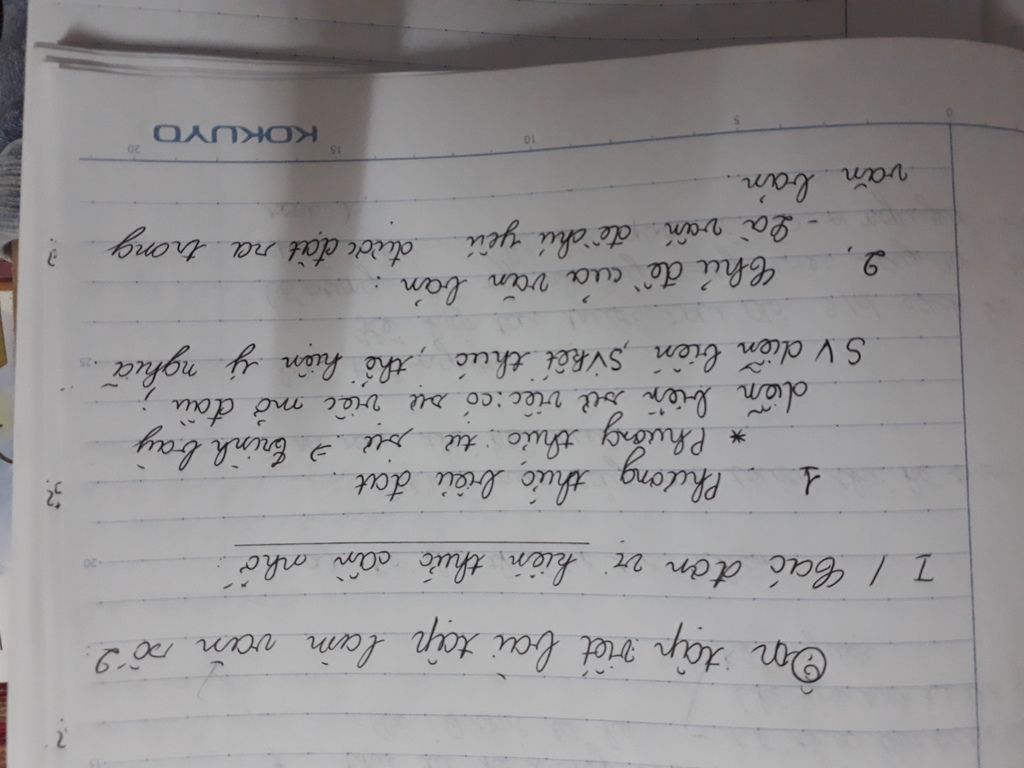 Ôn tập viết bài tập làm văn số 2
I / Các đơn vị kiến thức cần nhớ:
1 Phương thức biểu đạt
* Phương thức: tự sự → Trình bày
diễn biến sự việc: có sự việc mở đầu,
SV diễn biến, SV kết thúc, thể hiện ý nghĩa
2, Chủ đề của văn bản:
- Là vấn đề chủ yếu được đặt ra trong
văn bản.
KOKUYO